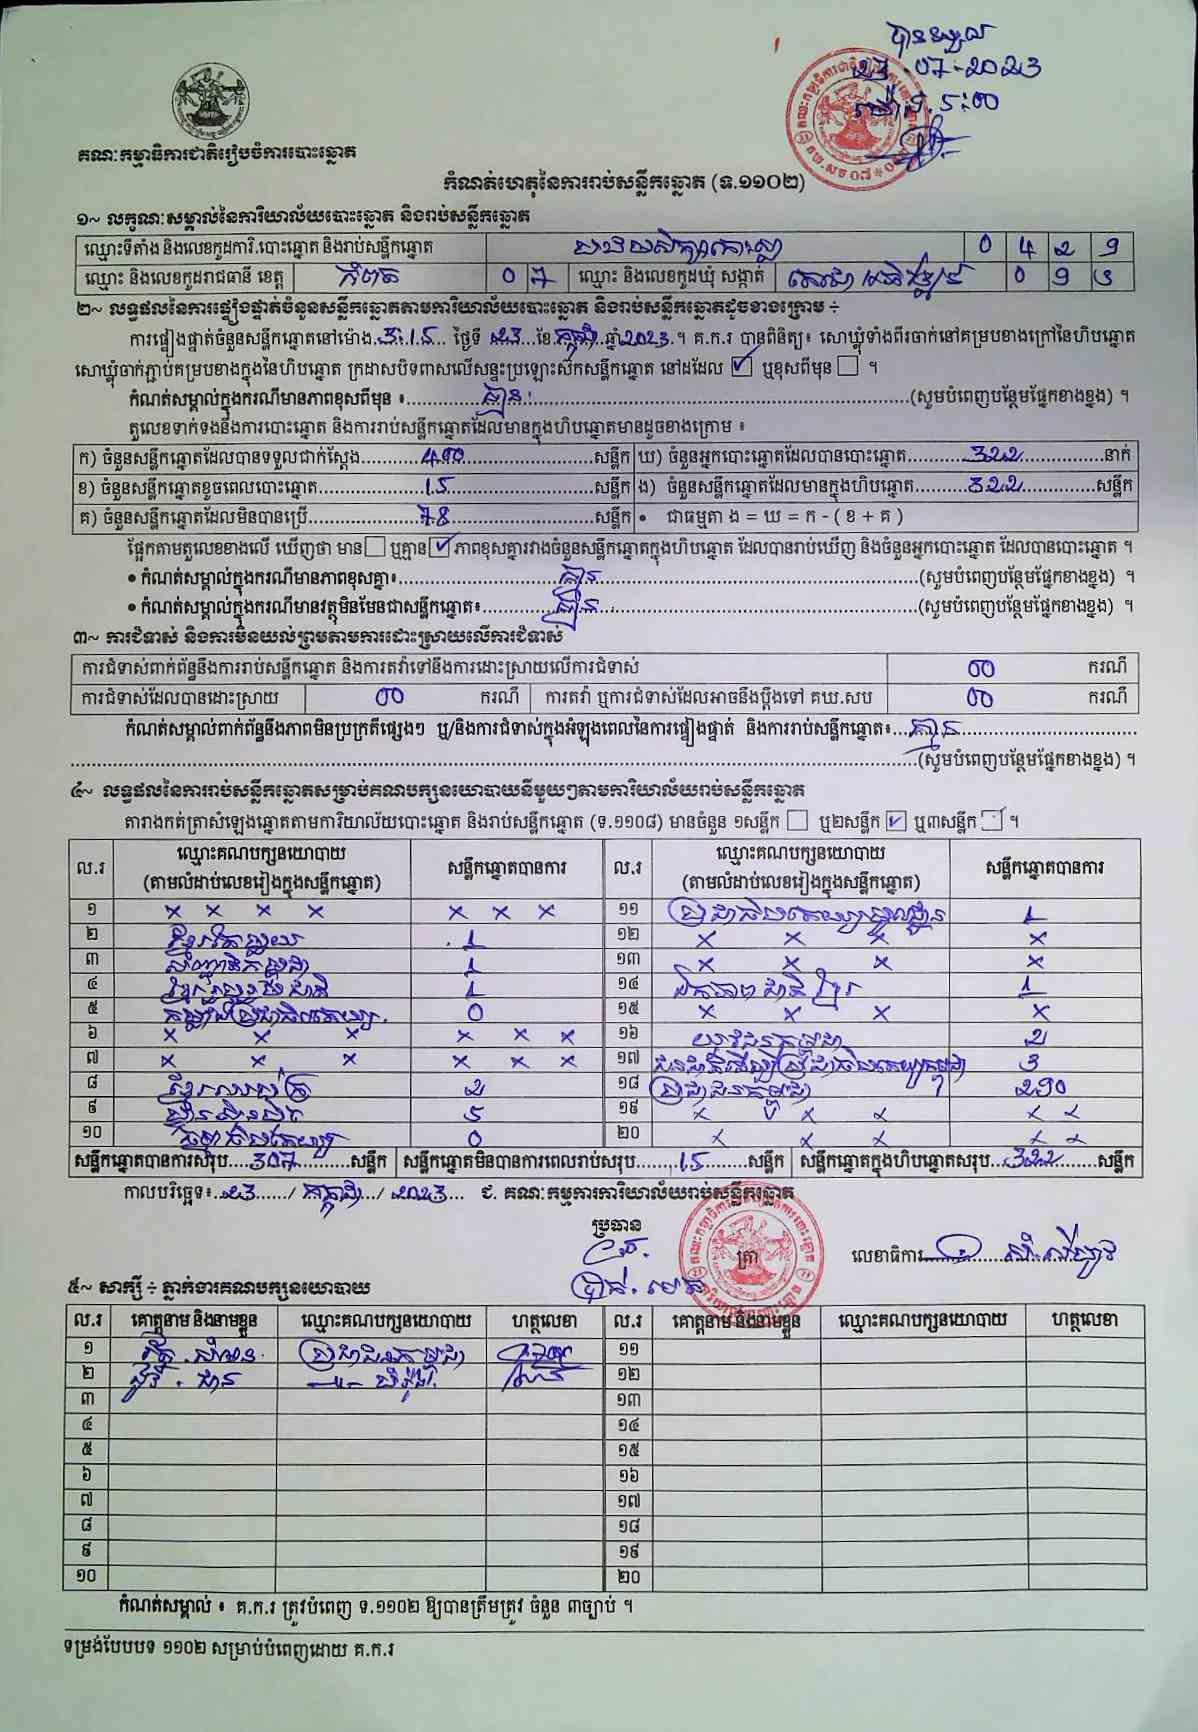 បានទទួល
23 07-2023
ម៉ោង 5:00
គណៈកម្មាធិការជាតិរៀបចំការបោះឆ្នោត
កំណត់ហេតុនៃការរាប់សន្លឹកឆ្នោត (ទ.១១០២)
១~ លក្ខណៈសម្គាល់នៃការិយាល័យបោះឆ្នោត និងរាប់សន្លឹកឆ្នោត
ឈ្មោះទីតាំង និងលេខកូដការិ.បោះឆ្នោត និងរាប់សន្លឹកឆ្នោត 0 4 2 9
ឈ្មោះ និងលេខកូដរាជធានី ខេត្ត កំពត 0 7 ឈ្មោះ និងលេខកូដឃុំ សង្កាត់ 0 9
២~ លទ្ធផលនៃការផ្ទៀងផ្ទាត់ចំនួនសន្លឹកឆ្នោតតាមការិយាល័យបោះឆ្នោត និងរាប់សន្លឹកឆ្នោតដូចខាងក្រោម ÷
ការផ្ទៀងផ្ទាត់ចំនួនសន្លឹកឆ្នោតនៅម៉ោង.3:15... ថ្ងៃទី 23 ខែ.កក្កដា..ឆ្នាំ2023.។ គ.ក.រ បានពិនិត្យ៖ សោឃ្លុំទាំងពីរចាក់នៅគម្របខាងក្រៅនៃហិបឆ្នោត
សោឃ្លុំចាក់ភ្ជាប់គម្របខាងក្នុងនៃហិបឆ្នោត ក្រដាសបិទពាសលើសន្ទះប្រឡោះស៊កសន្លឹកឆ្នោត នៅដដែល ☑ ឬខុសពីមុន ☐ ។
កំណត់សម្គាល់ក្នុងករណីមានភាពខុសពីមុន ៖ គ្មាន (សូមបំពេញបន្ថែមផ្នែកខាងខ្នង) ។
តួលេខទាក់ទងនឹងការបោះឆ្នោត និងការរាប់សន្លឹកឆ្នោតដែលមានក្នុងហិបឆ្នោតមានដូចខាងក្រោម ៖
ក) ចំនួនសន្លឹកឆ្នោតដែលបានទទួលជាក់ស្តែង...សន្លឹក ឃ) ចំនួនអ្នកបោះឆ្នោតដែលបានបោះឆ្នោត...322...នាក់
ខ) ចំនួនសន្លឹកឆ្នោតខូចពេលបោះឆ្នោត...15...សន្លឹក ង) ចំនួនសន្លឹកឆ្នោតដែលមានក្នុងហិបឆ្នោត...322...សន្លឹក
គ) ចំនួនសន្លឹកឆ្នោតដែលមិនបានប្រើ...78...សន្លឹក • ជាធម្មតា ង = ឃ = ក - ( ខ + គ )
ផ្អែកតាមតួលេខខាងលើ ឃើញថា មាន ☐ ឬគ្មាន ☑ ភាពខុសគ្នារវាងចំនួនសន្លឹកឆ្នោតក្នុងហិបឆ្នោត ដែលបានរាប់ឃើញ និងចំនួនអ្នកបោះឆ្នោត ដែលបានបោះឆ្នោត ។
• កំណត់សម្គាល់ក្នុងករណីមានភាពខុសគ្នា៖ គ្មាន (សូមបំពេញបន្ថែមផ្នែកខាងខ្នង) ។
• កំណត់សម្គាល់ក្នុងករណីមានវត្ថុមិនមែនជាសន្លឹកឆ្នោត៖ គ្មាន (សូមបំពេញបន្ថែមផ្នែកខាងខ្នង) ។
៣~ ការជំទាស់ និងការមិនយល់ព្រមតាមការដោះស្រាយលើការជំទាស់
ការជំទាស់ពាក់ព័ន្ធនឹងការរាប់សន្លឹកឆ្នោត និងការតវ៉ាទៅនឹងការដោះស្រាយលើការជំទាស់ 00 ករណី
ការជំទាស់ដែលបានដោះស្រាយ 00 ករណី ការតវ៉ា ឬការជំទាស់ដែលអាចនឹងប្តឹងទៅ គឃ.សប 00 ករណី
កំណត់សម្គាល់ពាក់ព័ន្ធនឹងភាពមិនប្រក្រតីផ្សេងៗ ឬ/និងការជំទាស់ក្នុងអំឡុងពេលនៃការផ្ទៀងផ្ទាត់ និងការរាប់សន្លឹកឆ្នោត៖ គ្មាន
(សូមបំពេញបន្ថែមផ្នែកខាងខ្នង) ។
៤~ លទ្ធផលនៃការរាប់សន្លឹកឆ្នោតសម្រាប់គណបក្សនយោបាយនីមួយៗតាមការិយាល័យរាប់សន្លឹកឆ្នោត
តារាងកត់ត្រាសំឡេងឆ្នោតតាមការិយាល័យបោះឆ្នោត និងរាប់សន្លឹកឆ្នោត (ទ.១១០៨) មានចំនួន ១សន្លឹក ☐ ឬ២សន្លឹក ☑ ឬ៣សន្លឹក ☐ ។
ល.រ ឈ្មោះគណបក្សនយោបាយ សន្លឹកឆ្នោតបានការ ល.រ ឈ្មោះគណបក្សនយោបាយ សន្លឹកឆ្នោតបានការ
(តាមលំដាប់លេខរៀងក្នុងសន្លឹកឆ្នោត) (តាមលំដាប់លេខរៀងក្នុងសន្លឹកឆ្នោត)
១ × × × × × × × ១១ 1
២ 1 ១២ × × × ×
៣ 1 ១៣ × × × ×
៤ 1 ១៤ ឯកភាពជាតិខ្មែរ 1
៥ កម្លាំងប្រជាធិបតេយ្យ 0 ១៥ × × × ×
៦ × × × × × × ១៦ យុវជនកម្ពុជា 2
៧ × × × × × × ១៧ 3
៨ 2 ១៨ ប្រជាជនកម្ពុជា 290
៩ ហ្វ៊ុនស៊ិនប៉ិច 5 ១៩ × × × × ×
១០ 0 ២០ × × × × ×
សន្លឹកឆ្នោតបានការសរុប....307......សន្លឹក សន្លឹកឆ្នោតមិនបានការពេលរាប់សរុប......15......សន្លឹក សន្លឹកឆ្នោតក្នុងហិបឆ្នោតសរុប...322......សន្លឹក
កាលបរិច្ឆេទ៖ 23 / កក្កដា / 2023 ជ. គណៈកម្មការការិយាល័យរាប់សន្លឹកឆ្នោត
ប្រធាន
ត្រា លេខាធិការ
៥~ សាក្សី ÷ ភ្នាក់ងារគណបក្សនយោបាយ
ល.រ គោត្តនាម និងនាមខ្លួន ឈ្មោះគណបក្សនយោបាយ ហត្ថលេខា ល.រ គោត្តនាម និងនាមខ្លួន ឈ្មោះគណបក្សនយោបាយ ហត្ថលេខា
១ ប្រជាជនកម្ពុជា ១១
២ ១២
៣ ១៣
៤ ១៤
៥ ១៥
៦ ១៦
៧ ១៧
៨ ១៨
៩ ១៩
១០ ២០
កំណត់សម្គាល់ ៖ គ.ក.រ ត្រូវបំពេញ ទ.១១០២ ឱ្យបានត្រឹមត្រូវ ចំនួន ៣ច្បាប់ ។
ទម្រង់បែបបទ ១១០២ សម្រាប់បំពេញដោយ គ.ក.រ